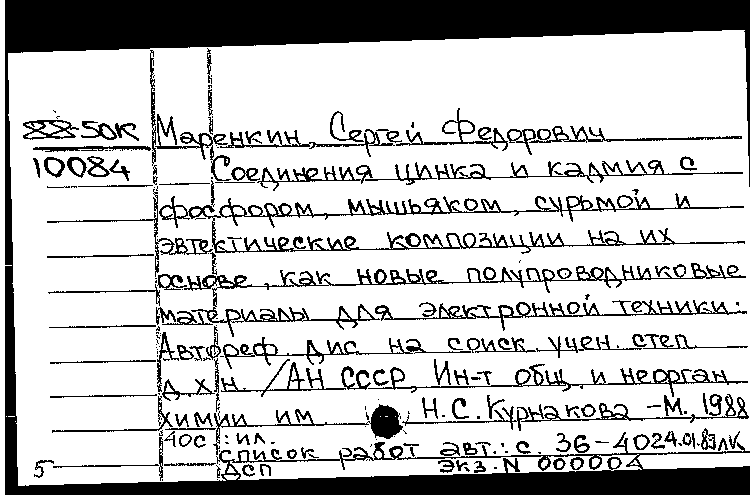 88-50К Маренкин, Сергей Федорович
10084 Соединения цинка и кадмия с
фосфором, мышьяком, сурьмой и
эвтестические композиции на их
основе, как новые полупроводниковые
материалы для электронной техники:
Автореф. дис. на соиск. учен. степ.
д.х.н. /АН СССР, Ин-т общ. и неорган
химии им. Н.С. Курнакова -М., 1988
40с : ил.
список работ авт.: с. 36-40
ДСП экз. N 000004
5